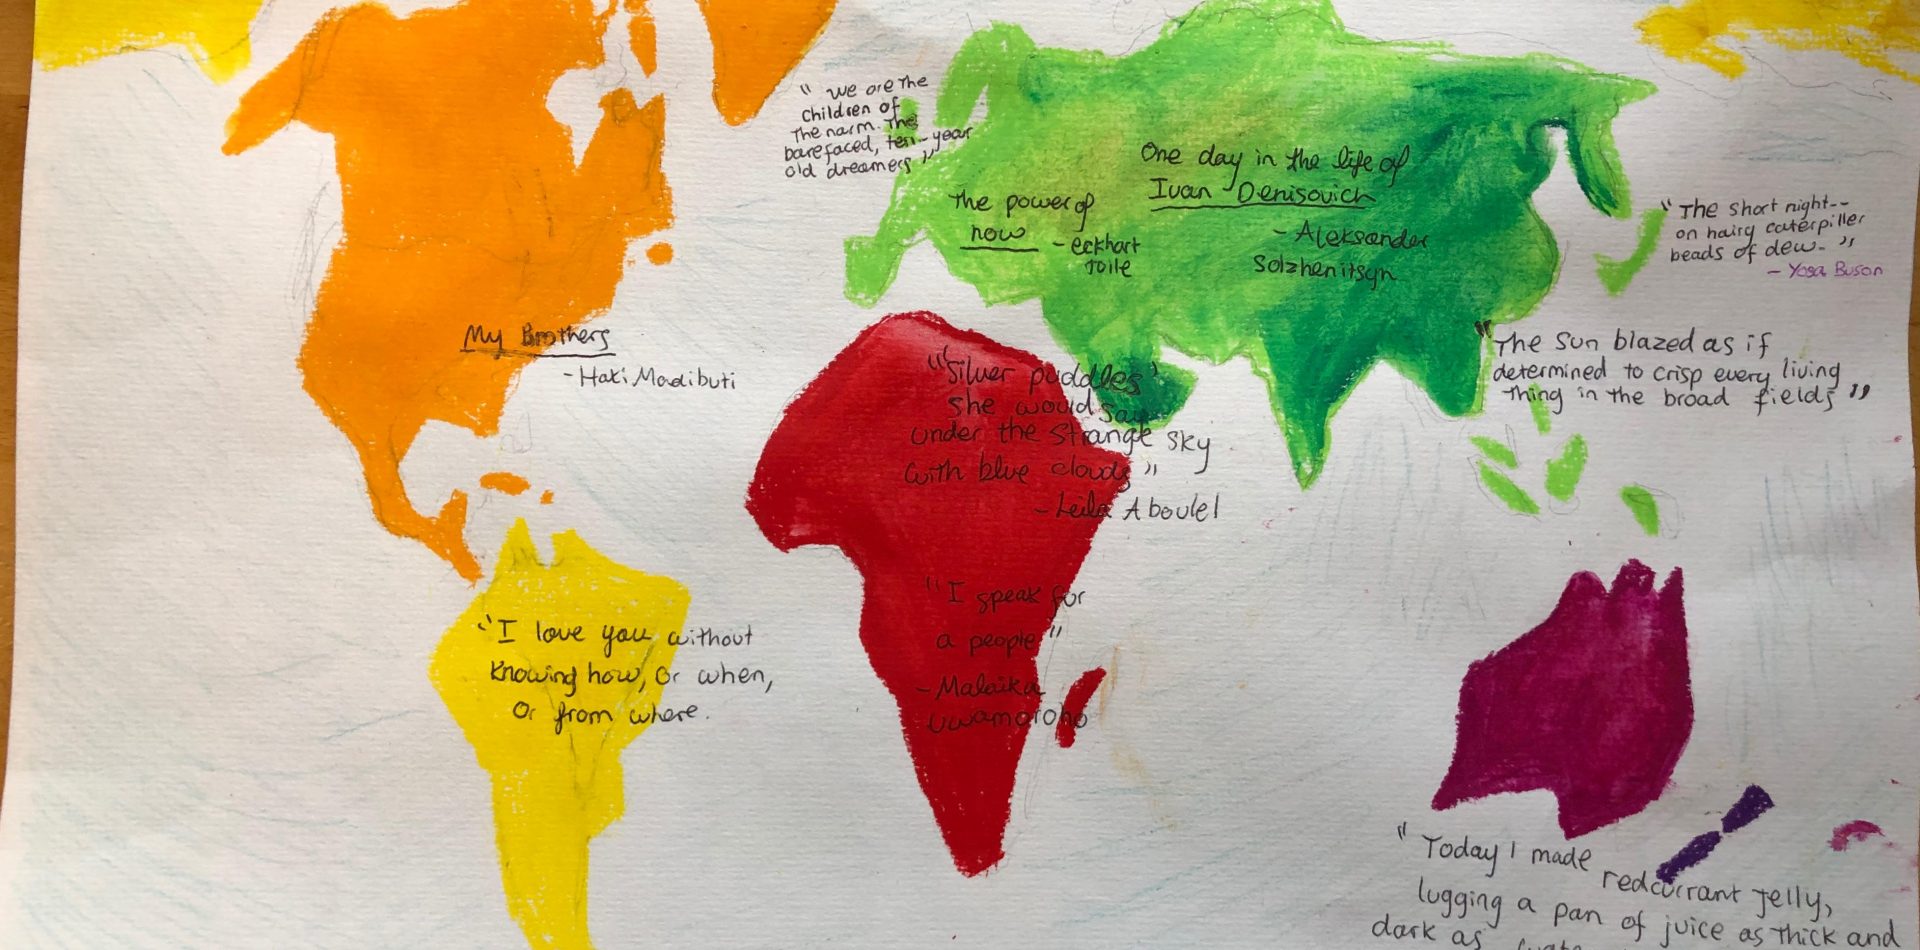 "We are the
children of
the narm. The
barefaced, ten-year
old dreamers"
One day in the life of
Ivan Denisovich
- Aleksander
Solzhenitsyn
the power of
now - eckhart
Tolle
"The short night--
on hairy caterpiller
beads of dew. "
- Yosa Buson
My Brothers
- Haki Madibuti
"The Sun blazed as if
determined to crisp every living
thing in the broad fields"
"Silver puddles
she would say
under the strange sky
with blue clouds"
- Leila Aboulel
"I speak for
a people"
- Malaika
Uwamoroho
"I love you without
knowing how, or when,
Or from where.
"Today I made
redcurrant jelly,
lugging a pan of juice as thick and
dark as